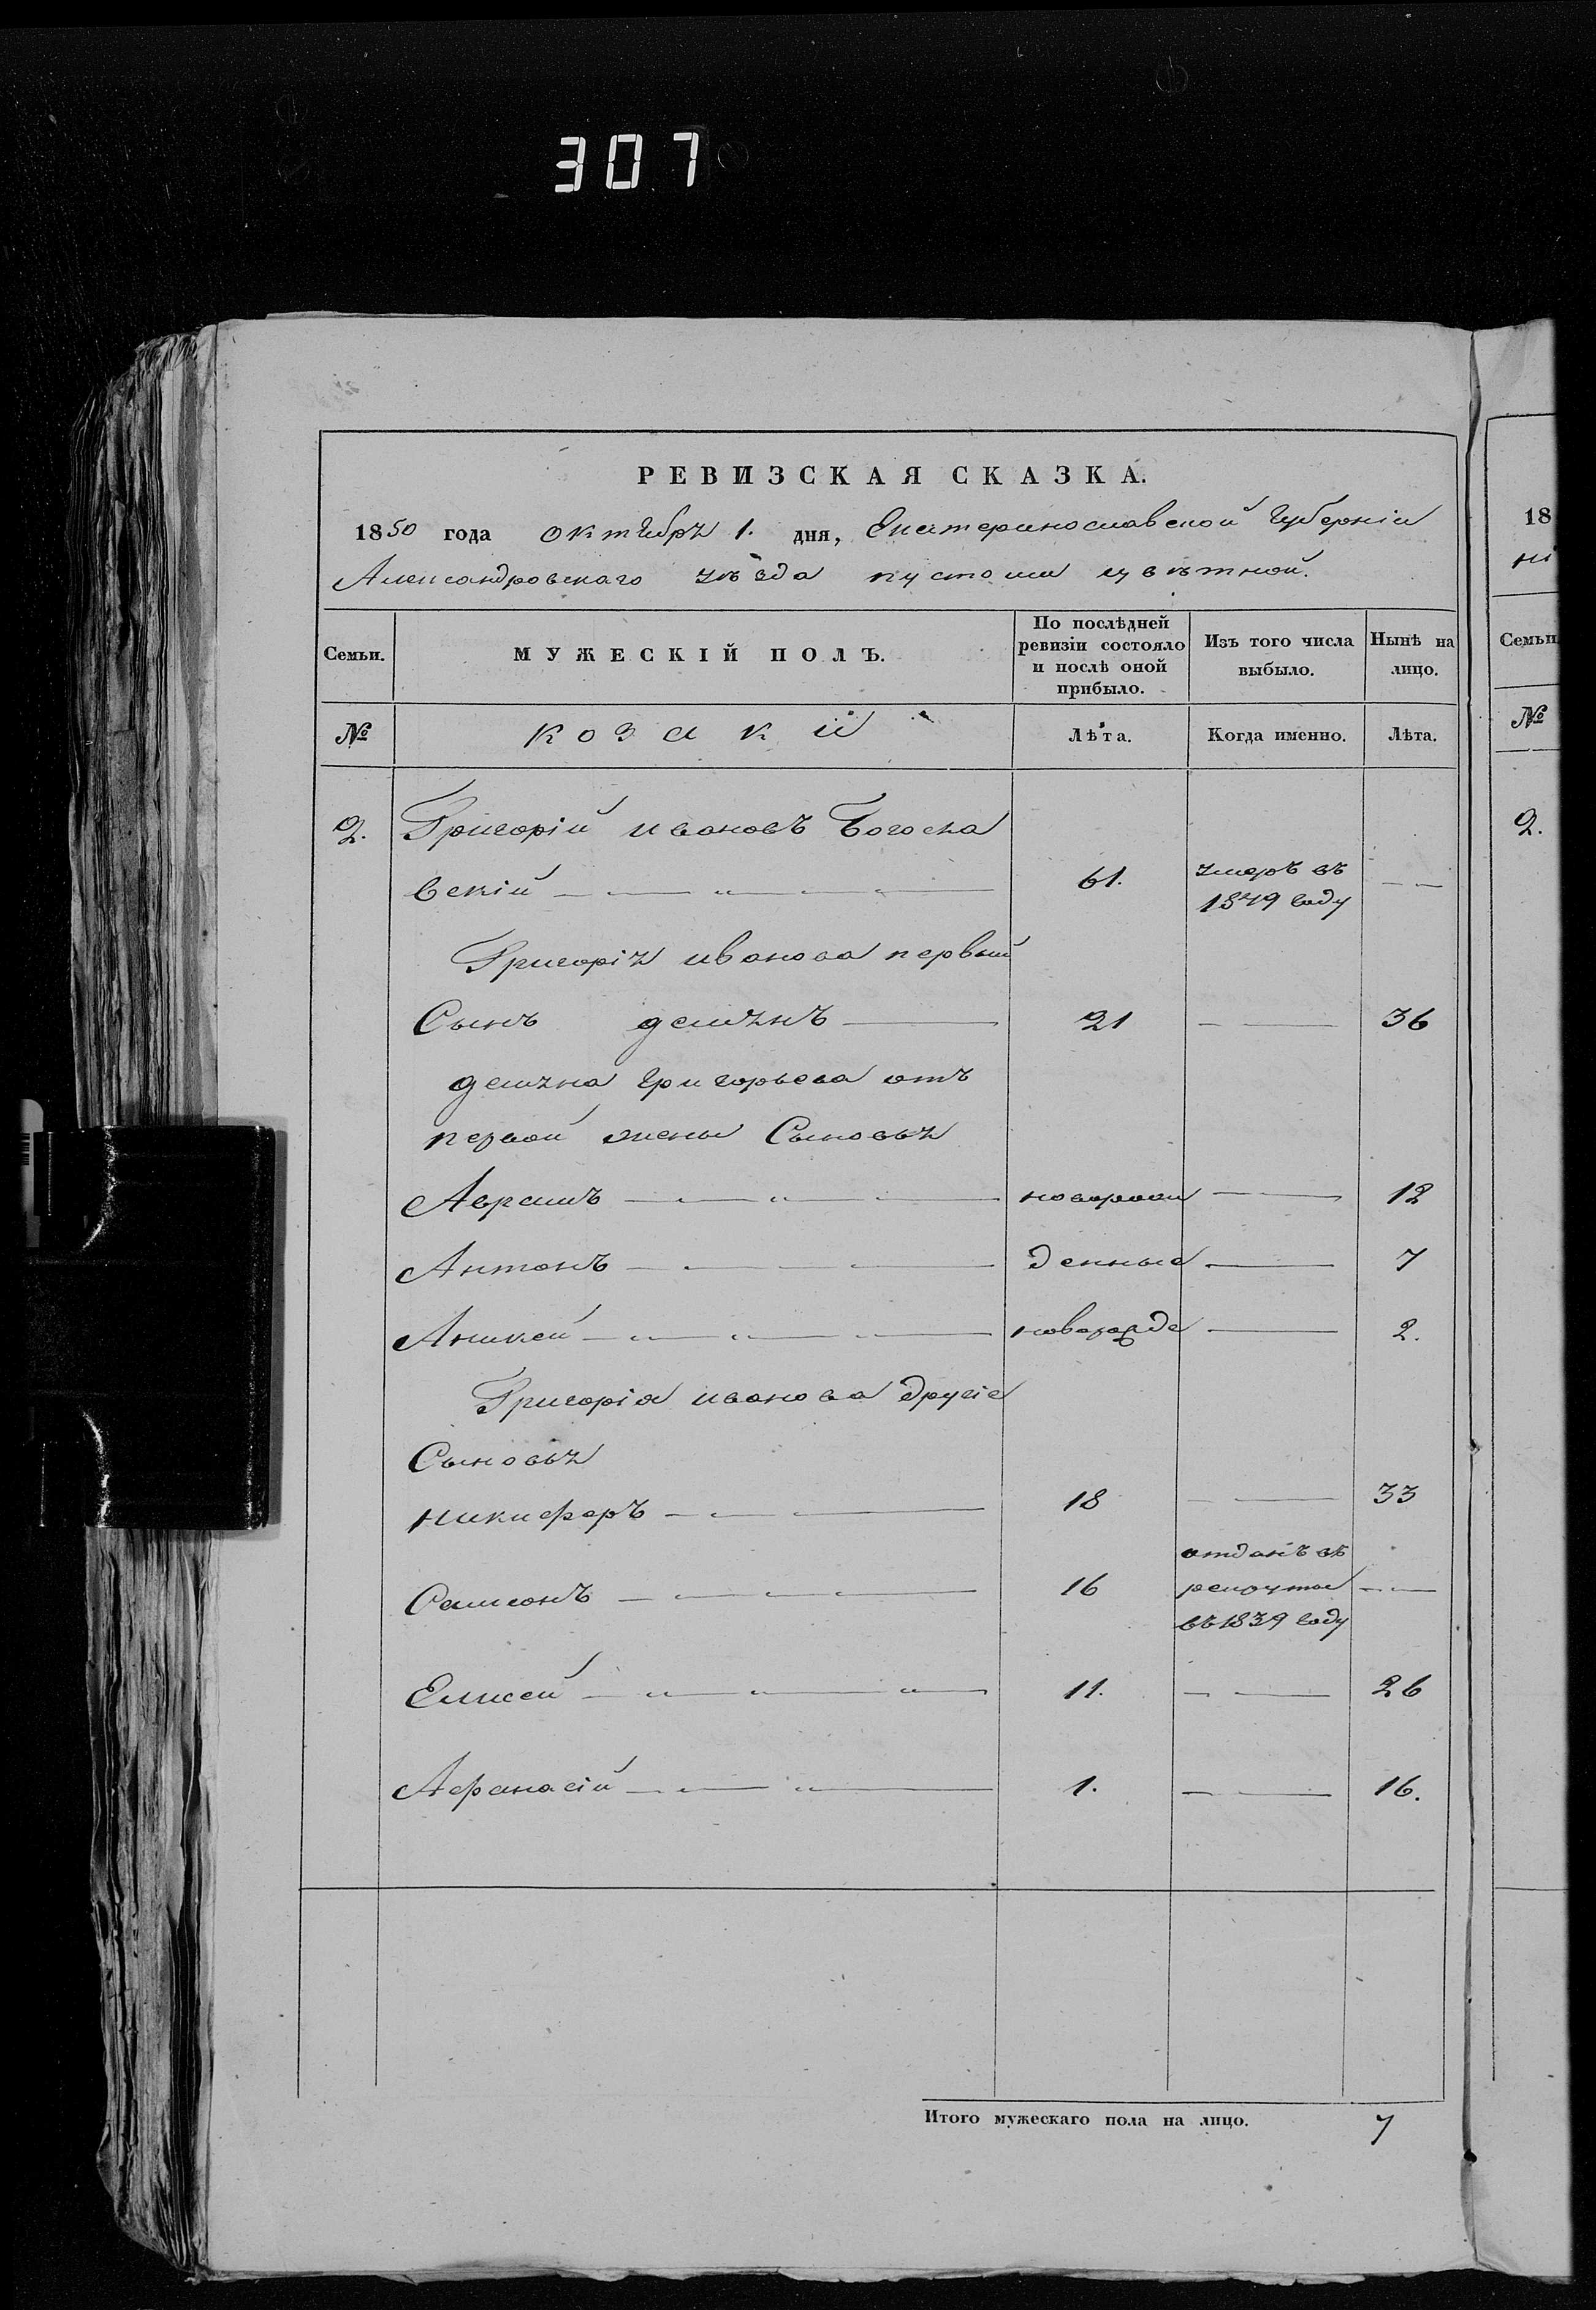 307
РЕВИЗСКАЯ СКАЗКА.
1850 года октября 1. дня, Екатеринославской Губерніи
Александровскаго уѣзда пустоши цвѣтной.
Семьи.
МУЖЕСКІЙ ПОЛЪ.
По послѣдней ревизіи состояло и послѣ оной прибыло.
Изъ того числа выбыло.
Нынѣ на лицо.
№
козаки
Лѣта.
Когда именно.
Лѣта.
2. Григорій Ивановъ Богосла
вскій 61. умеръ въ 1849 году
Григорія Иванова первый
Сынъ Демянъ 21 36
Демяна Григорьева отъ
первой жены Сыновья
Аврамъ новорож 12
Антонъ денные 7
Аникей новорожде 2.
Григорія Иванова другіе
Сыновья
Никифоръ 18 33
Самсонъ 16 отданъ въ рекруты въ 1839 году
Елисей 11. 26
Афанасій 1. 16.
Итого мужескаго пола на лицо. 7
18
ні
Семьи
№
2.